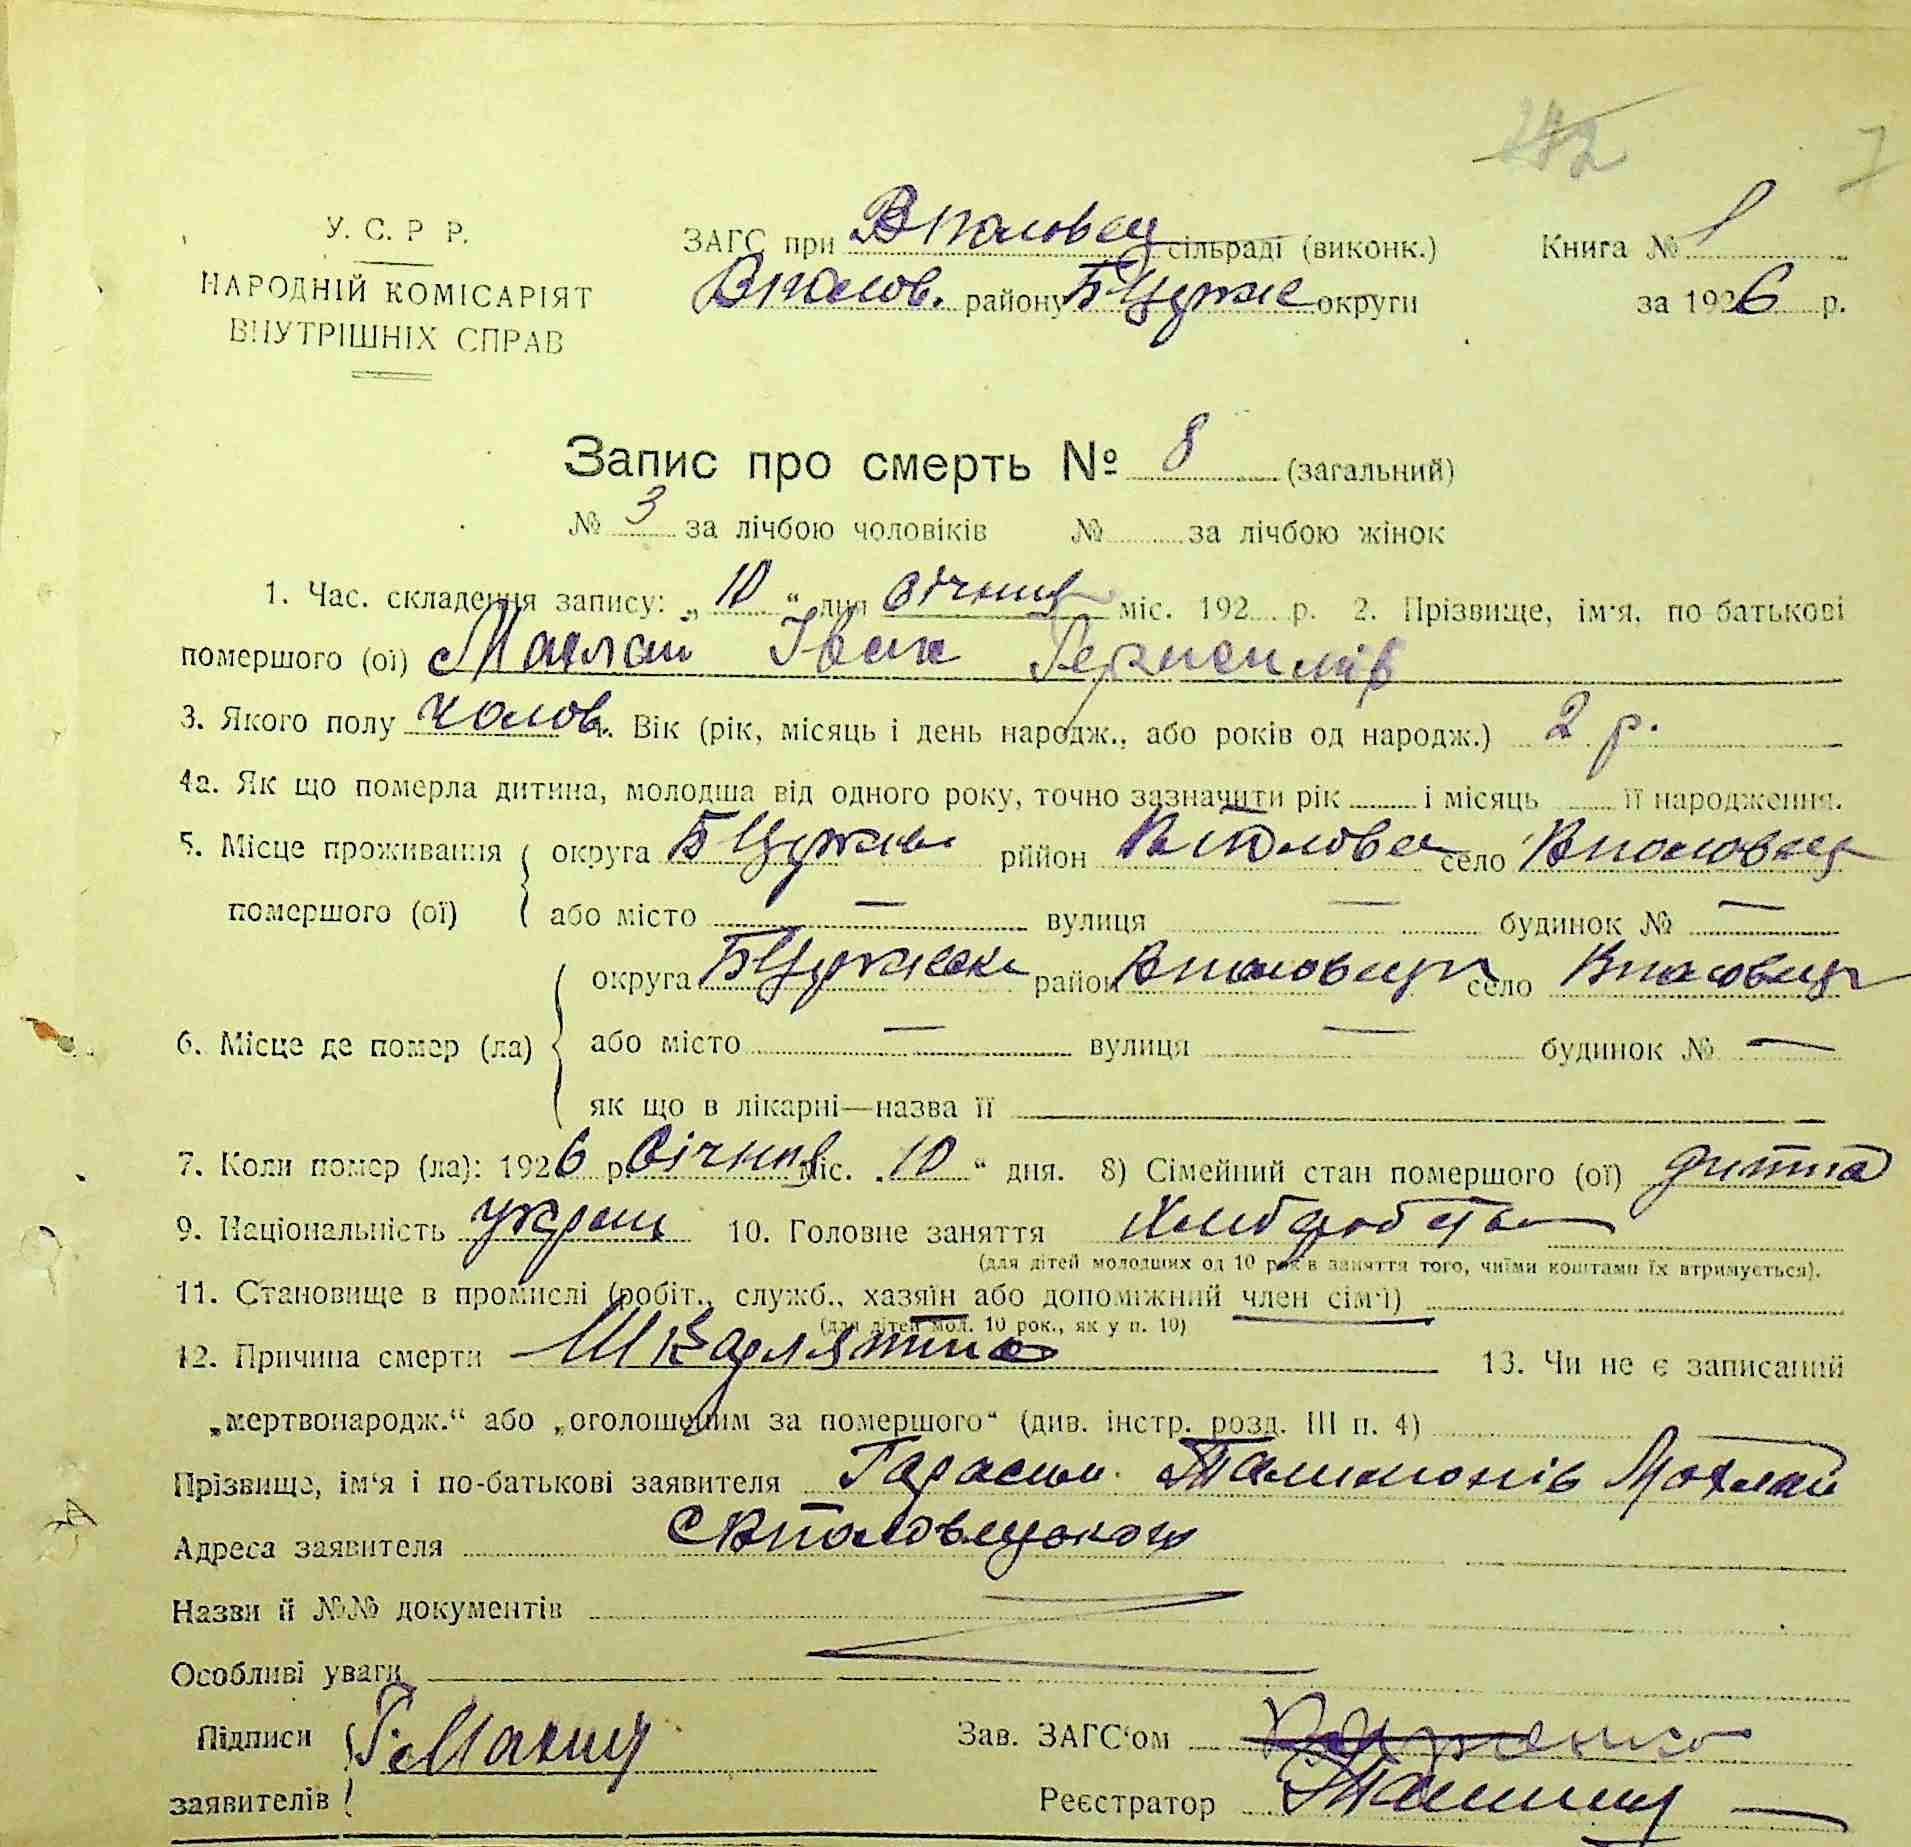 У. С. Р Р.
НАРОДНІЙ КОМІСАРІЯТ
ВНУТРІШНІХ СПРАВ
ЗАГС при Вполовец сільраді (виконк.) Книга № 1
Вполов. району БЦерк округи за 1926 р.
Запис про смерть № 8 (загальний)
№ 3 за лічбою чоловіків № за лічбою жінок
1. Час. складення запису: „10“ дня січня міс. 192 р. 2. Прізвище, ім'я, по-батькові
помершого (ої) Іван
3. Якого полу чолов. Вік (рік, місяць і день народж., або років од народж.) 2 р.
4а. Як що померла дитина, молодша від одного року, точно зазначити рік і місяць її народження.
5. Місце проживання округа БЦерків рййон Вполовец село Вполовец
помершого (ої) або місто — вулиця — будинок № —
6. Місце де помер (ла) округа район Вполовец село Вполовец
або місто — вулиця — будинок № —
як що в лікарні—назва її
7. Коли помер (ла): 1926 р. Січня міс. „10“ дня. 8) Сімейний стан помершого (ої)
9. Національність україн 10. Головне заняття
(для дітей молодших од 10 рок'в заняття того, чиїми коштами їх втримується).
11. Становище в промислі (робіт., служб., хазяїн або допоміжний член сім'ї)
(для дітей мол. 10 рок., як у п. 10)
12. Причина смерти Шкарлятина 13. Чи не є записаний
„мертвонародж.“ або „оголошеним за помершого“ (див. інстр. розд. III п. 4)
Прізвище, ім'я і по-батькові заявителя Гарасим
Адреса заявителя
Назви й №№ документів
Особливі уваги
Підписи
заявителів
Зав. ЗАГС'ом
Реєстратор